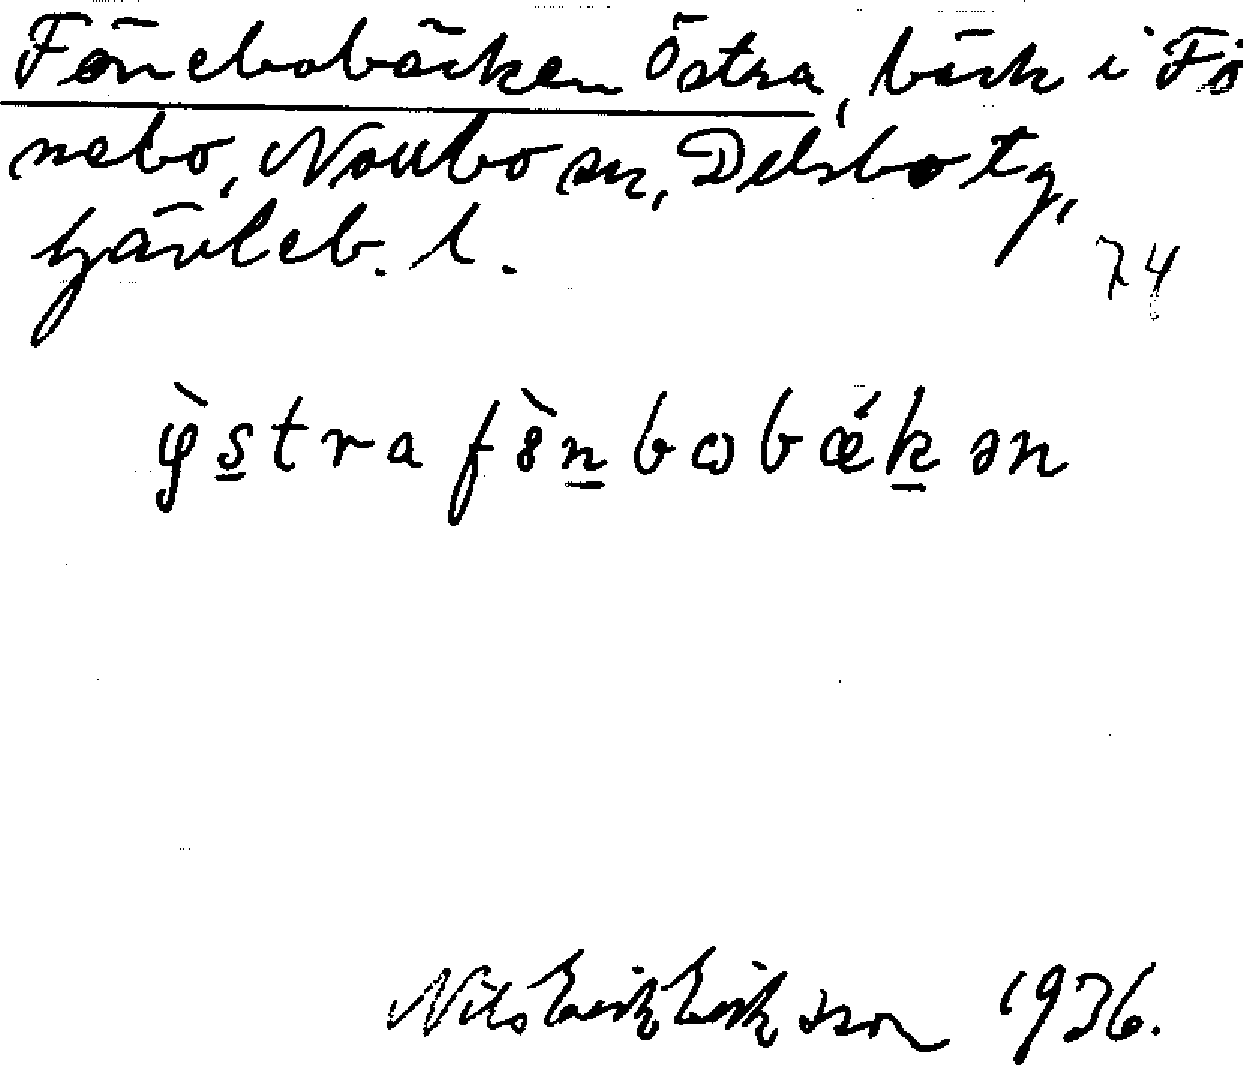 Fönebobäcken Östra, bäck i Fö
nebo, Norrbo sn, Delsbo tg,
Gävleb. l.
74
Nils Erik Eriksson 1936.